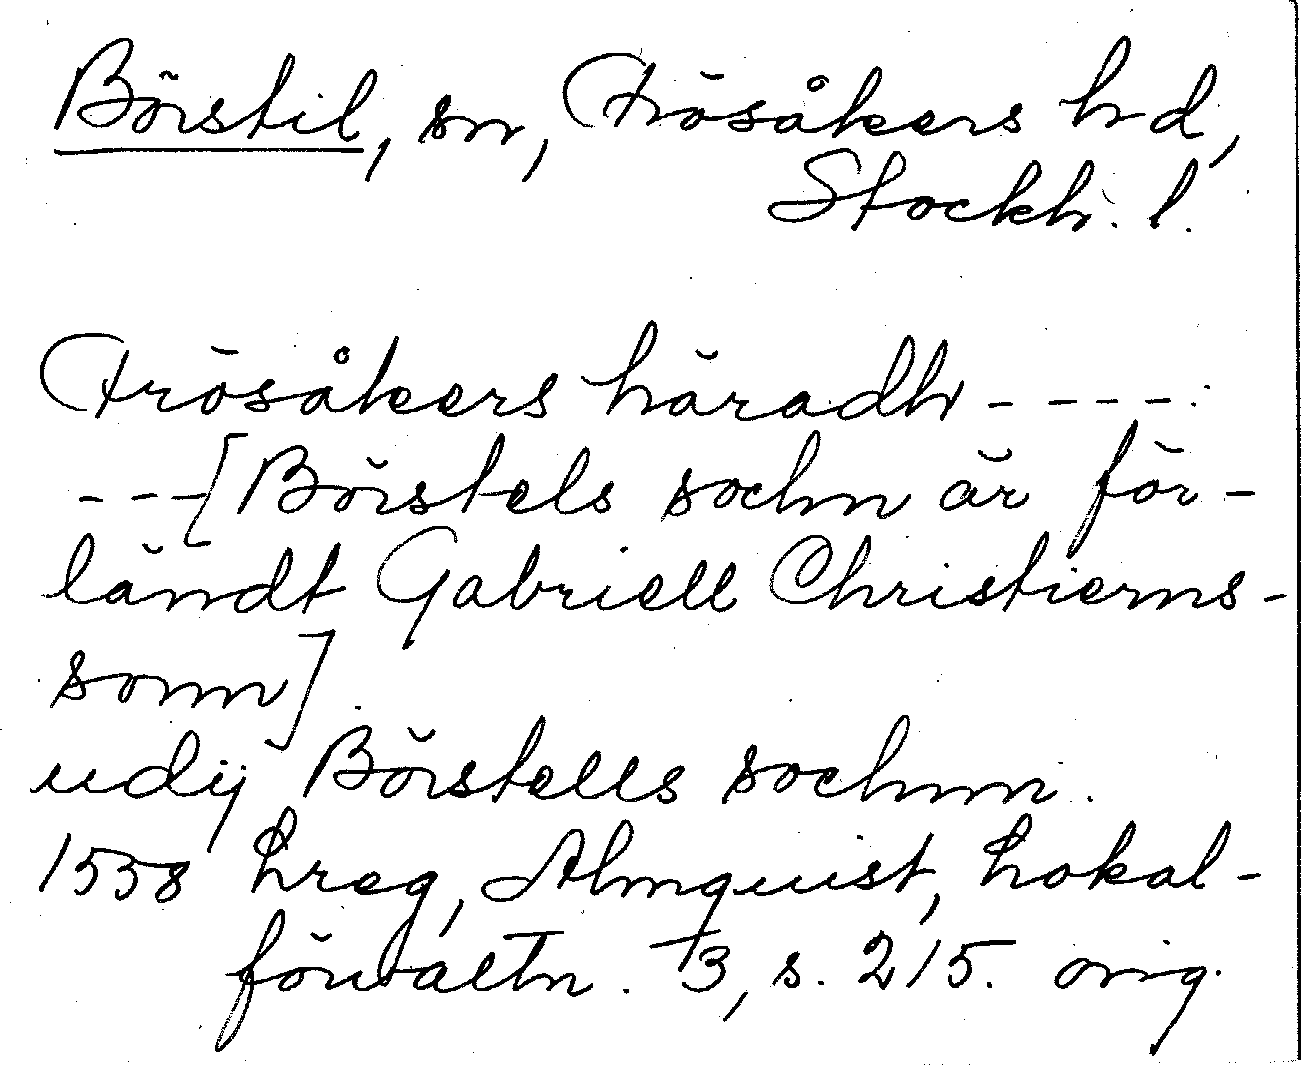 Börstil, sn, Frösåkers hd,
Stockh. l.
Frösåkers häradh - - - -
- - - [Börstels sochn är för-
ländt Gabriell Christierns-
sonn]
udij Börstells sochnn.
1558 Lreg, Almquist, Lokal-
förvaltn. 3, s. 215. orig.